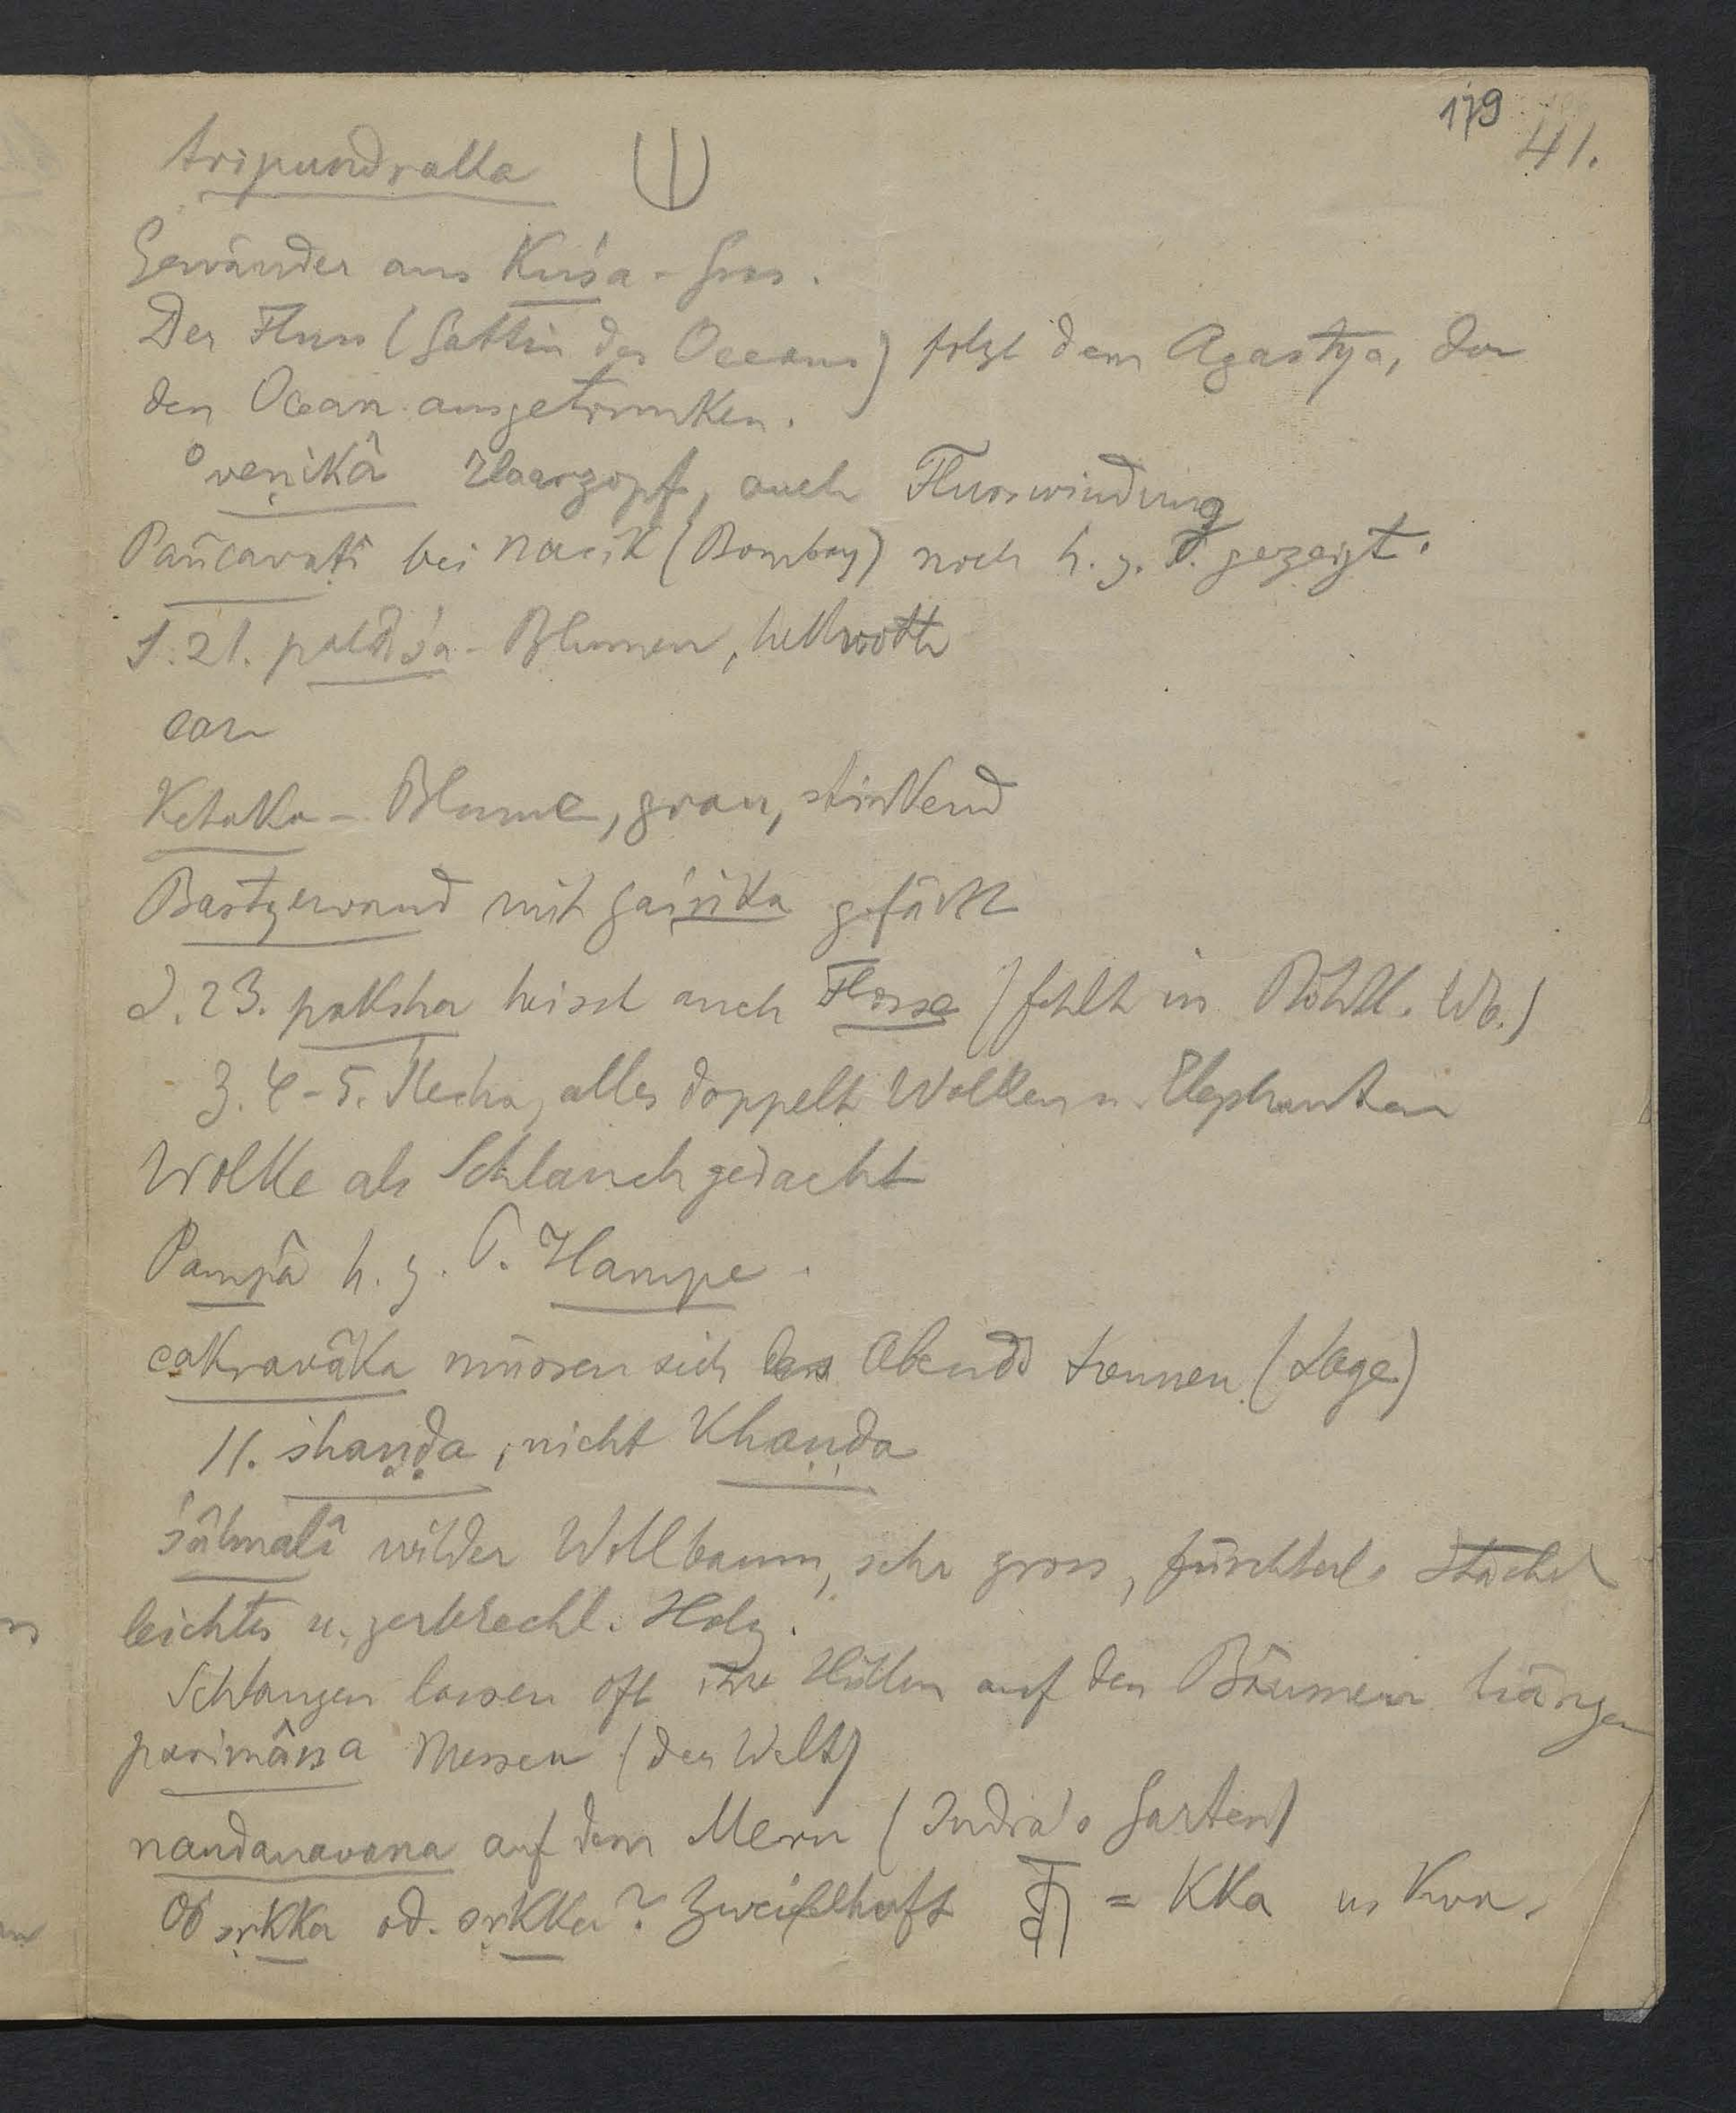 179
41.
tripundraka
Gewänder aus Kuśa-Gras.
Der Fluss (Gattin des Oceans) folgt dem Agastya, der
den Ocean ausgetrunken.
°veṇikâ Haarzopf, auch Flusswindung
Pañcavaṭî bei Nasik (Bombay) noch h. z. T. gezeigt.
S. 21. palâśa-Blumen, hellroth
Ketaka-Blume, grau, stinkend
Bastgewand mit gairika gefärbt
S. 23. paksha heisst auch Flosse (fehlt in Böhtl. Wb.)
3. 4-5. alles doppelt Wolken u. Elephanten
Wolke als Schlauch gedacht
Pampâ h. z. T. Hampe.
cakravâka müssen sich des Abends trennen (Sage)
11. shaṇḍa, nicht Khaṇḍa
śâlmalî wilder Wollbaum, sehr gross, fürchterl. Stachel
leichtes u. zerbrechl. Holz.
Schlangen lassen oft ihre Hüllen auf den Bäumen hängen
parimâṇa Messen (der Welt)
nandanavana auf dem Meru (Indra's Garten)
Ob sṛkka od. sṛkka? Zweifelhaft = kka u. kva.